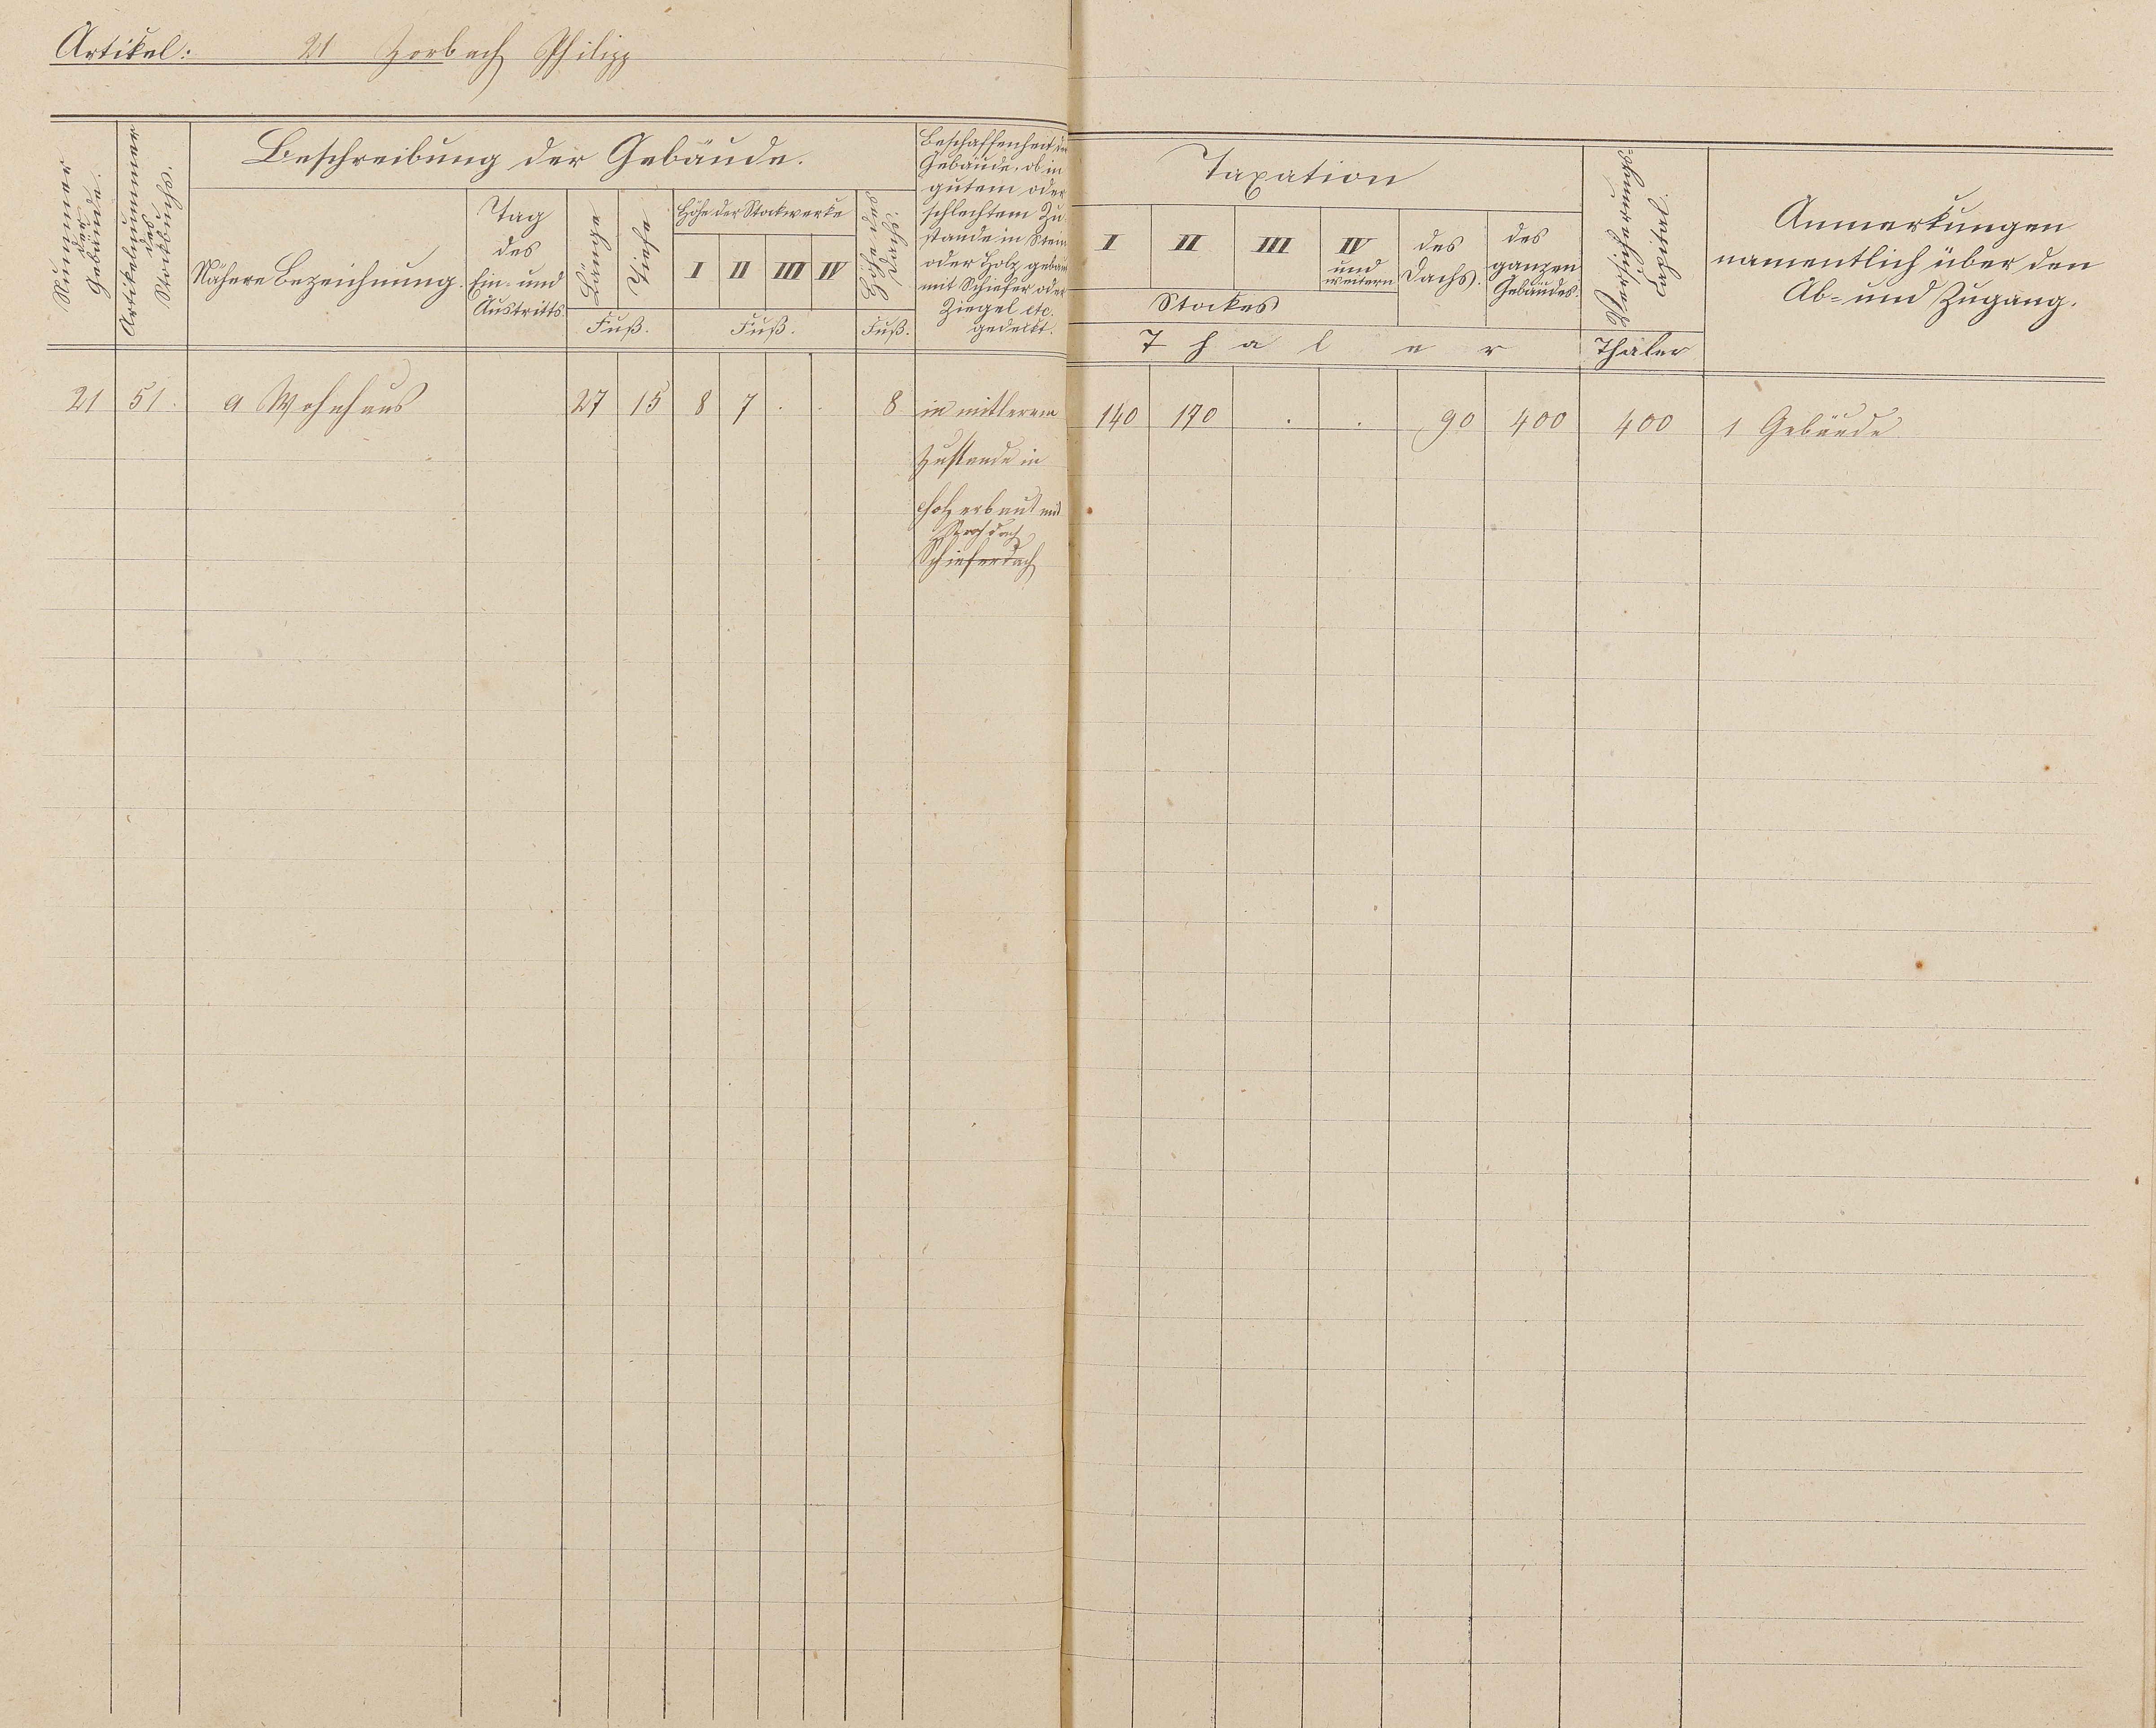 Artikel: 21 Horbach Philipp
Nummer
der
Gebäude.
Artikelnummer
des
Stockbuchs.
Beschreibung der Gebäude.
Nähere Bezeichnung.
Tag
des
Ein- und
Austritts.
Länge
Tiefe
Fuß.
Höhe der Stockwerke
I II III IV
Fuß.
Höhe des
Dachs.
Fuß.
Beschaffenheit der
Gebäude, ob in
gutem oder
schlechtem Zu-
stande in Stein
oder Holz gebaut
mit Schiefer oder
Ziegel etc.
gedeckt.
Taxation
I II III IV
und
weitern
Stockes
des
Dachs.
des
ganzen
Gebäudes.
Thaler
Versicherungs-
capital.
Thaler
Anmerkungen
namentlich über den
Ab- und Zugang.
21 51. a Wohnhaus 27 15 8 7 . . 8 in mitlerem 140 170 . . 90 400 400 1 Gebäude
Zustande in
Holz erbaut mit
Strohdach
Schieferdach